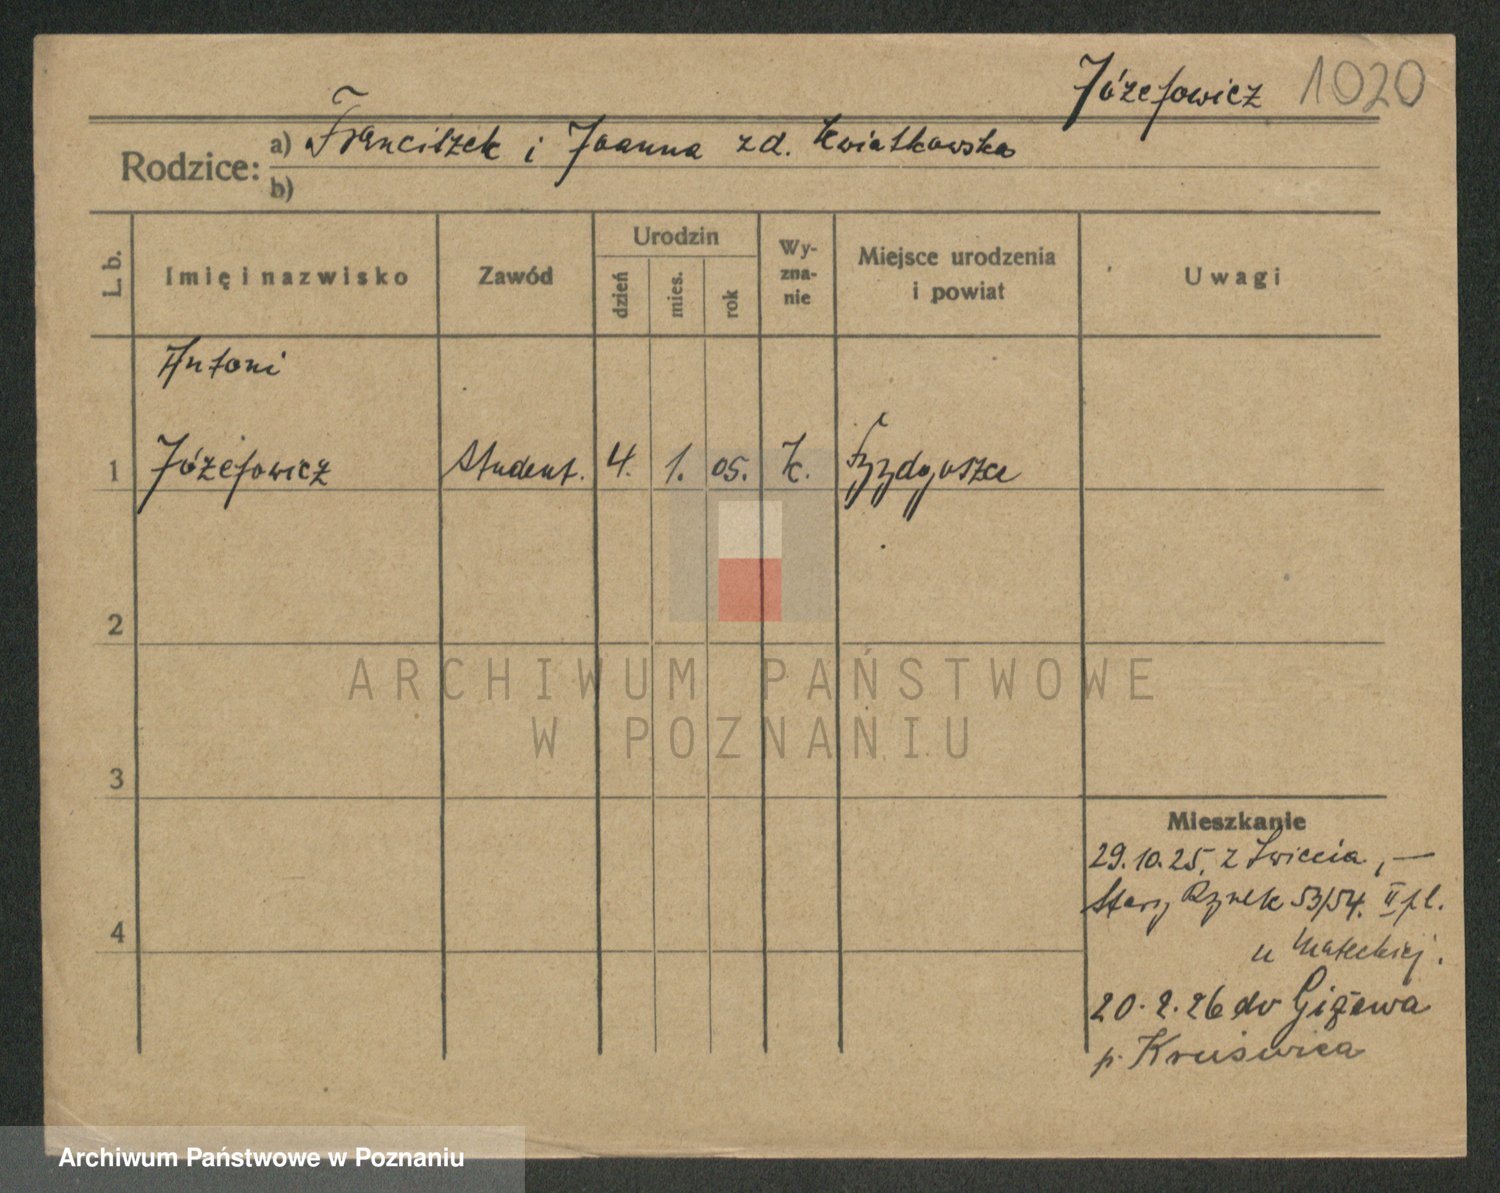 Józefowicz 1020
Rodzice: a) Franciszek i Joanna zd. Kwiatkowska
b)
L. b. Imię i nazwisko Zawód Urodzin dzień mies. rok Wy-zna-nie Miejsce urodzenia i powiat Uwagi
Antoni
1 Józefowicz Student. 4. 1. 05. k.
2
ARCHIWUM PAŃSTWOWE
W POZNANIU
3
Mieszkanie
29.10.25, z Świecia, —
Stary Rynek 53/54. II p l.
4
u Małeckiej.
20. 2. 26 do Giżewa
p. Kruświca
Archiwum Państwowe w Poznaniu